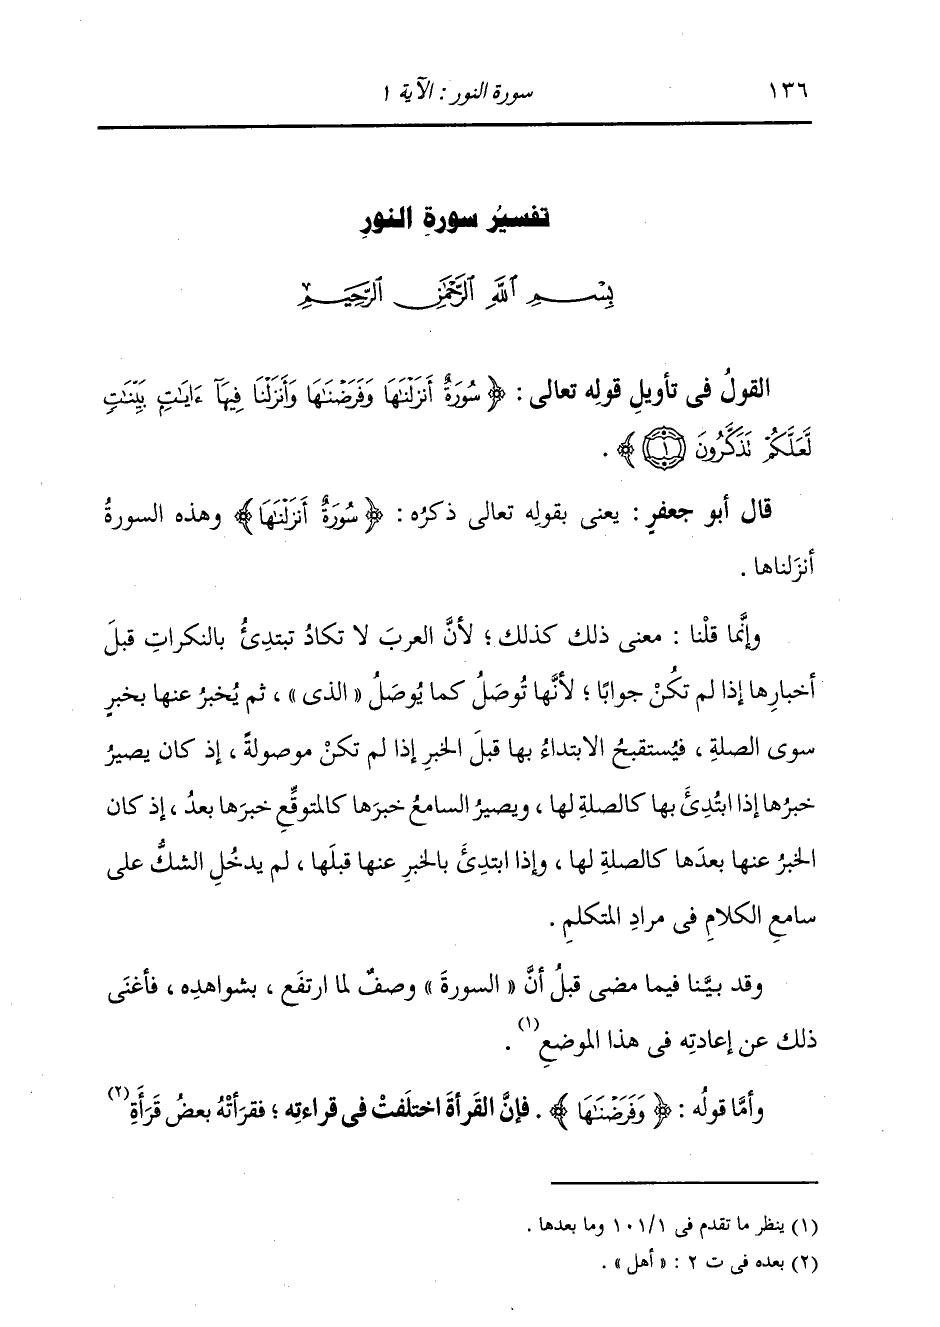 ١٣٦ سورة النور : الآية ١
تفسيرُ سورةِ النورِ
بِسْمِ ٱللَّهِ ٱلرَّحْمَٰنِ ٱلرَّحِيمِ
القولُ فى تأويلِ قولِه تعالى : ﴿ سُورَةٌ أَنزَلْنَٰهَا وَفَرَضْنَٰهَا وَأَنزَلْنَا فِيهَآ ءَايَٰتٍۭ بَيِّنَٰتٍ
لَّعَلَّكُمْ نَذَكَّرُونَ ﴿١﴾ ﴾ .
قال أبو جعفرٍ : يعنى بقولِه تعالى ذكرُه : ﴿ سُورَةٌ أَنزَلْنَٰهَا ﴾ وهذه السورةُ
أنزَلناها .
وإنَّما قلْنا : معنى ذلك كذلك ؛ لأنَّ العربَ لا تكادُ تبتدِئُ بالنكراتِ قبلَ
أخبارِها إذا لم تكُنْ جوابًا ؛ لأنَّها تُوصَلُ كما يُوصَلُ « الذى » ، ثم يُخبرُ عنها بخبرٍ
سوى الصلةِ ، فيُستقبحُ الابتداءُ بها قبلَ الخبرِ إذا لم تكنْ موصولةً ، إذ كان يصيرُ
خبرُها إذا ابتُدِئَ بها كالصلةِ لها ، ويصيرُ السامعُ خبرَها كالمتوقِّعِ خبرَها بعدُ ، إذ كان
الخبرُ عنها بعدَها كالصلةِ لها ، وإذا ابتدِئَ بالخبرِ عنها قبلَها ، لم يدخُلِ الشكُّ على
سامعِ الكلامِ فى مرادِ المتكلمِ .
وقد بيَّنا فيما مضى قبلُ أنَّ « السورةَ » وصفٌ لما ارتفَع ، بشواهدِه ، فأغنَى
ذلك عن إعادتِه فى هذا الموضعِ(١) .
وأمَّا قولُه : ﴿ وَفَرَضْنَٰهَا ﴾ . فإنَّ القَرأةَ اختلَفتْ فى قراءتِه ؛ فقرَأتْهُ بعضُ قَرَأةِ(٢)
(١) ينظر ما تقدم فى ١/ ١٠١ وما بعدها .
(٢) بعده فى ت ٢ : « أهل » .